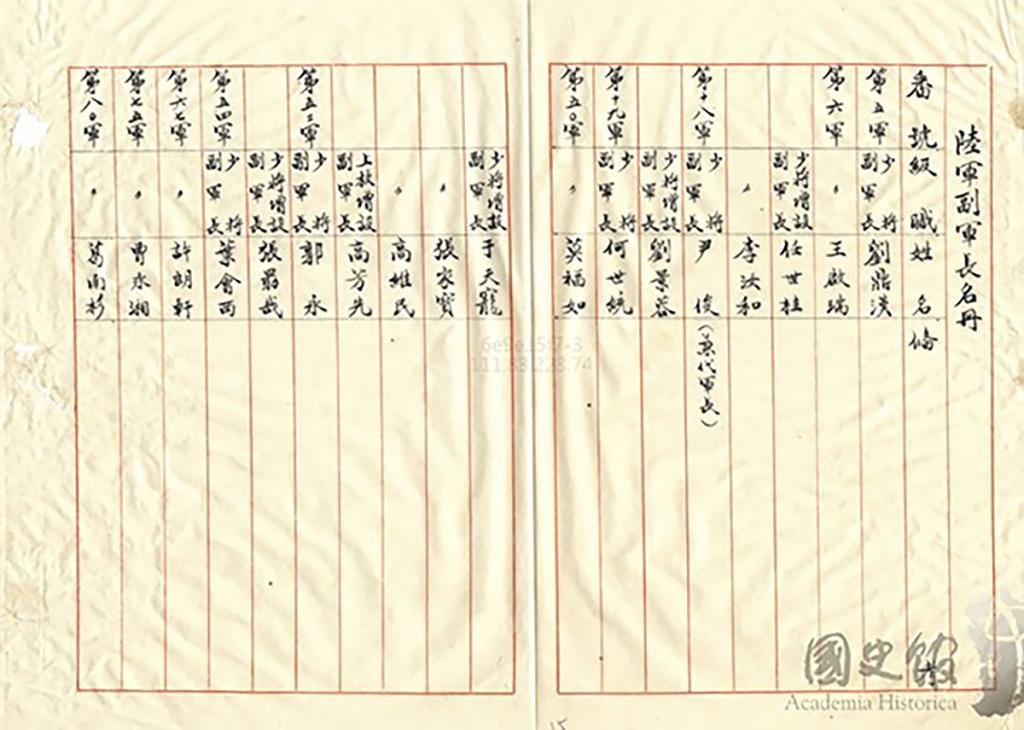 陸軍副軍長名冊
番號 級職 姓名 備
第五軍 少將副軍長 劉鼎漢
第六軍 〃 王啟瑞
少將增設副軍長 任世桂
〃 李汝和
第十八軍 少將副軍長 尹俊 (兼代軍長)
少將增設副軍長 劉景蓉
第十九軍 少將副軍長 何世統
第五〇軍 〃 莫福如
少將增設副軍長 于天寵
〃 張家寶
〃 高維民
上校增設副軍長 高芳先
第五二軍 少將副軍長 郭永
少將增設副軍長 張
第五四軍 少將副軍長 葉會西
第六七軍 〃 許朗軒
第七五軍 〃 曹永湘
第八〇軍 〃 葛南杉
6e9e15f7-3
111.83.228.74
國史館
Academia Historica
15